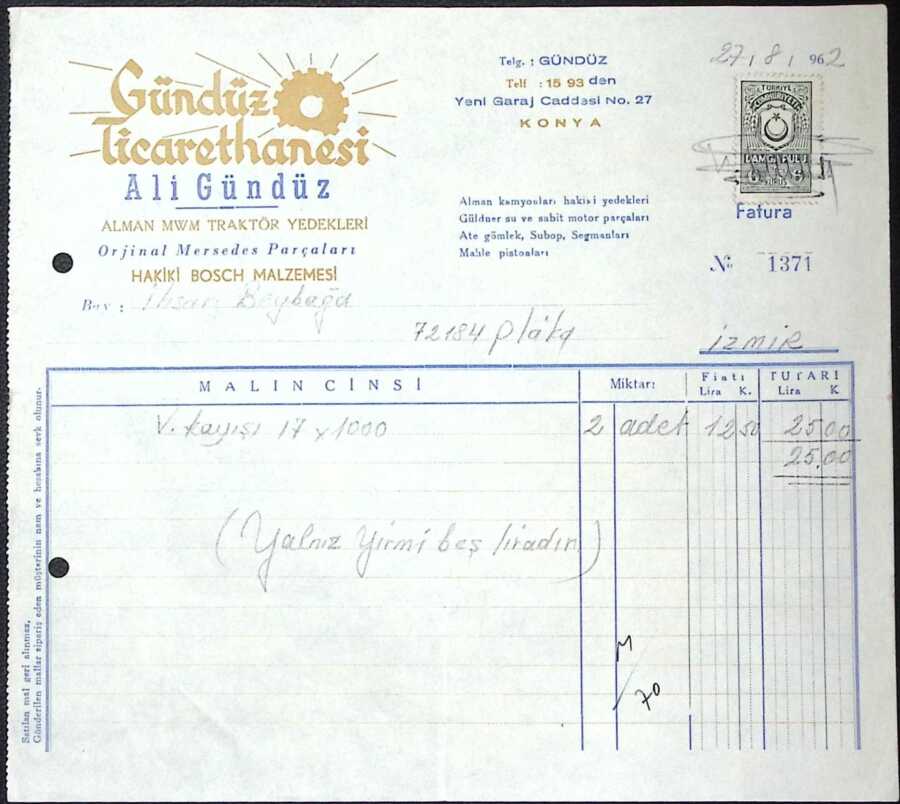 Gündüz
Ticarethanesi
Ali Gündüz
ALMAN MWM TRAKTÖR YEDEKLERİ
Orjinal Mersedes Parçaları
HAKİKİ BOSCH MALZEMESİ
Telg. : GÜNDÜZ
Telf : 15 93 den
Yeni Garaj Caddesi No. 27
KONYA
Alman kamyonları hakiki yedekleri
Güldner su ve sabit motor parçaları
Ate gömlek, Subop, Segmanları
Mahle pistonları
27 / 8 / 962
TÜRKİYE
CUMHURİYETİ
DAMGA PULU
6 KURUŞ 6
Fatura
№ 1371
Bay : İhsan Beybağa
72184 plâka
İZMİR
MALIN CİNSİ Miktarı Fiatı Lira K. TUTARI Lira K
V. kayışı 17 x 1000 2 adet 12 50 25 00
25.00
(Yalnız Yirmi beş liradır)
70
Satılan mal geri alınmaz,
Gönderilen mallar sipariş eden müşterinin nam ve hesabına sevk olunur.